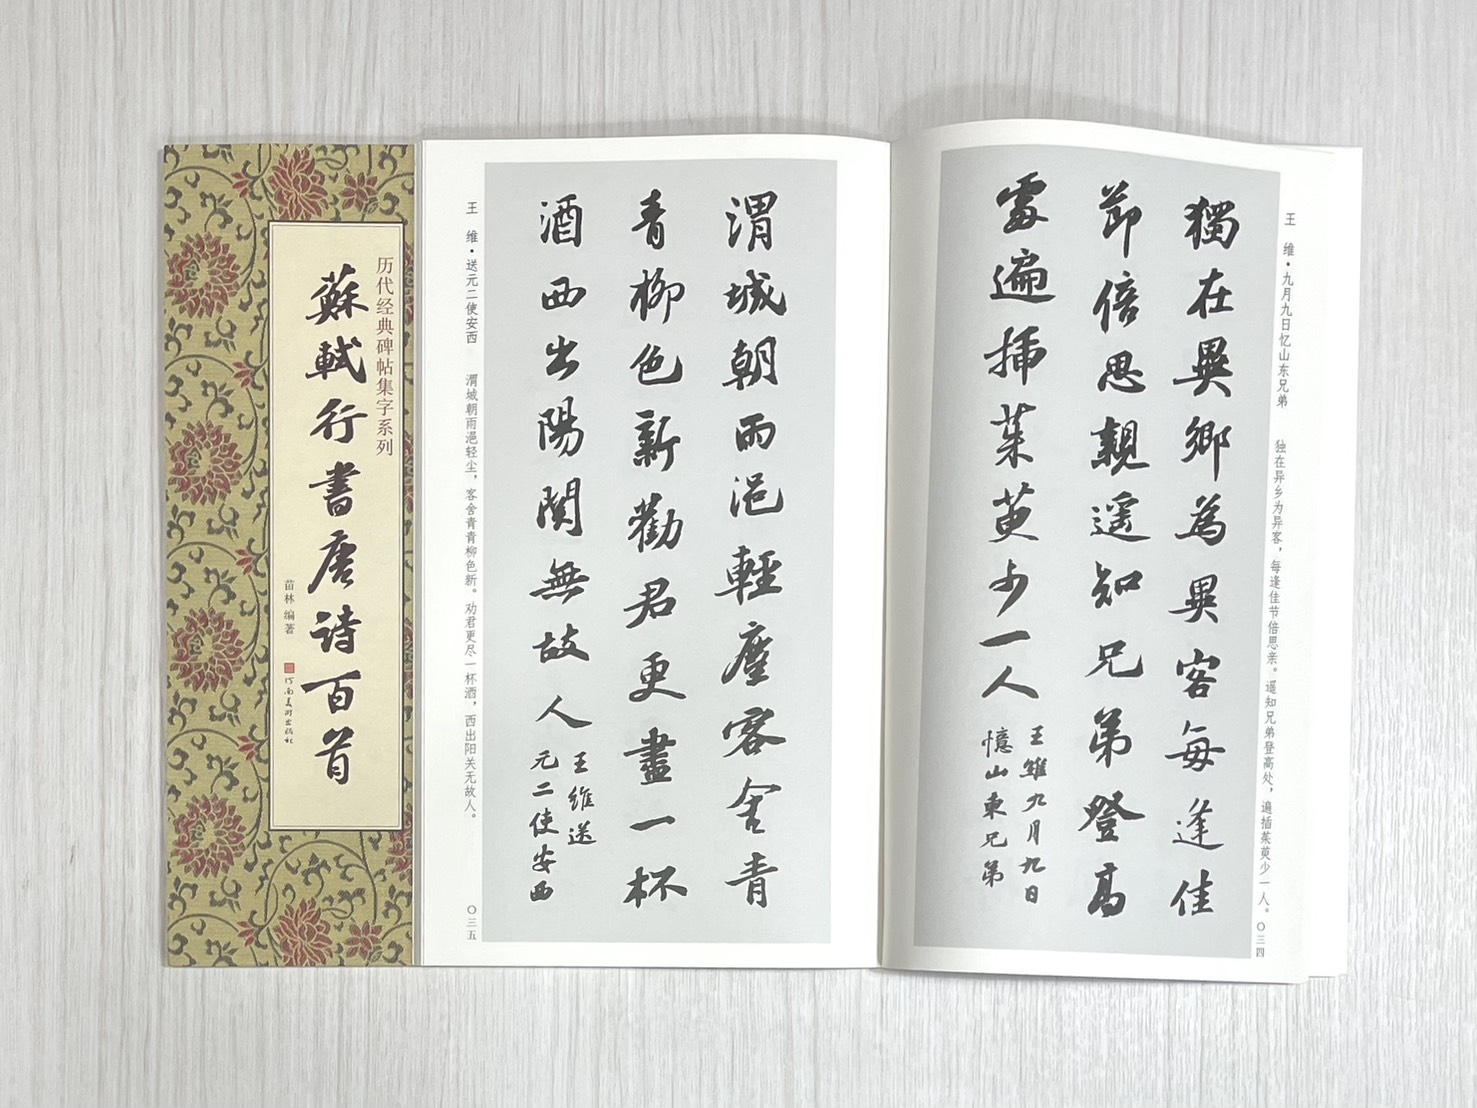 王 维·九月九日忆山东兄弟 独在异乡为异客，每逢佳节倍思亲。遥知兄弟登高处，遍插茱萸少一人。
〇三四
獨在異鄉為異客每逢佳
節倍思親遥知兄弟登高
處遍插茱萸少一人
王維九月九日
憶山東兄弟
渭城朝雨浥輕塵客舍青
青柳色新勸君更盡一杯
酒西出陽關無故人
王維送
元二使安西
王 维·送元二使安西 渭城朝雨浥轻尘，客舍青青柳色新。劝君更尽一杯酒，西出阳关无故人。
〇三五
历代经典碑帖集字系列
蘇軾行書唐诗百首
苗林 编著
河南美术出版社